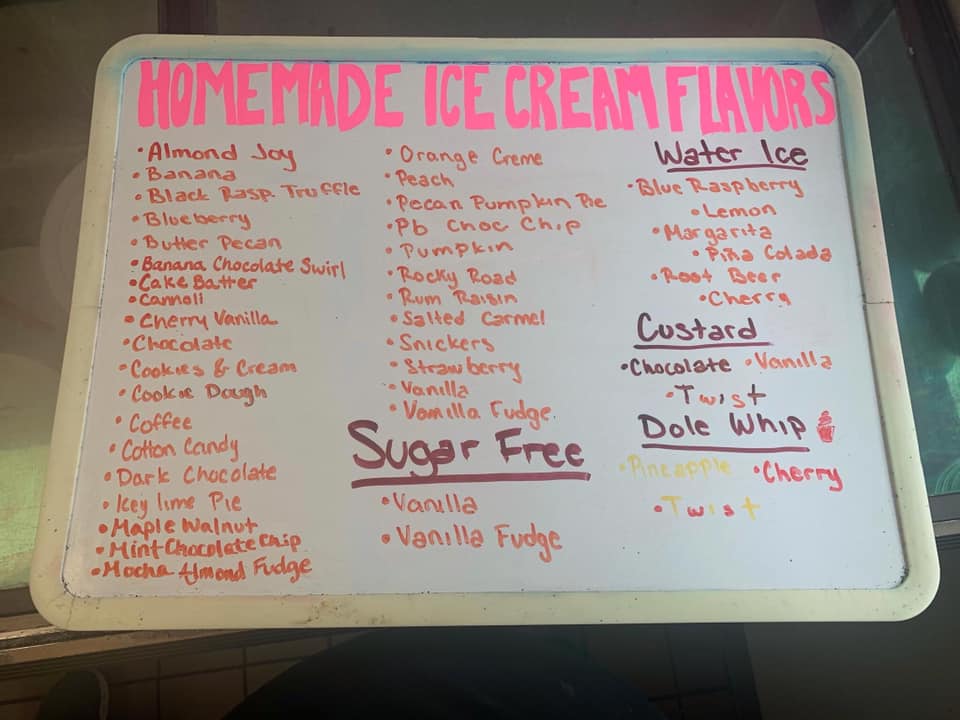 HOMEMADE ICE CREAM FLAVORS
• Almond Joy
• Banana
• Black Rasp. Truffle
• Blueberry
• Butter Pecan
• Banana Chocolate Swirl
• Cake Batter
• Cannoli
• Cherry Vanilla
• Chocolate
• Cookies & Cream
• Cookie Dough
• Coffee
• Cotton Candy
• Dark Chocolate
• Key lime Pie
• Maple Walnut
• Mint Chocolate Chip
• Mocha Almond Fudge
• Orange Creme
• Peach
• Pecan Pumpkin Pie
• Pb Choc Chip
• Pumpkin
• Rocky Road
• Rum Raisin
• Salted Carmel
• Snickers
• Strawberry
• Vanilla
• Vanilla Fudge
Sugar Free
• Vanilla
• Vanilla Fudge
Water Ice
• Blue Raspberry
• Lemon
• Margarita
• Piña Colada
• Root Beer
• Cherry
Custard
• Chocolate • Vanilla
• Twist
Dole Whip
• Pineapple • Cherry
• Twist